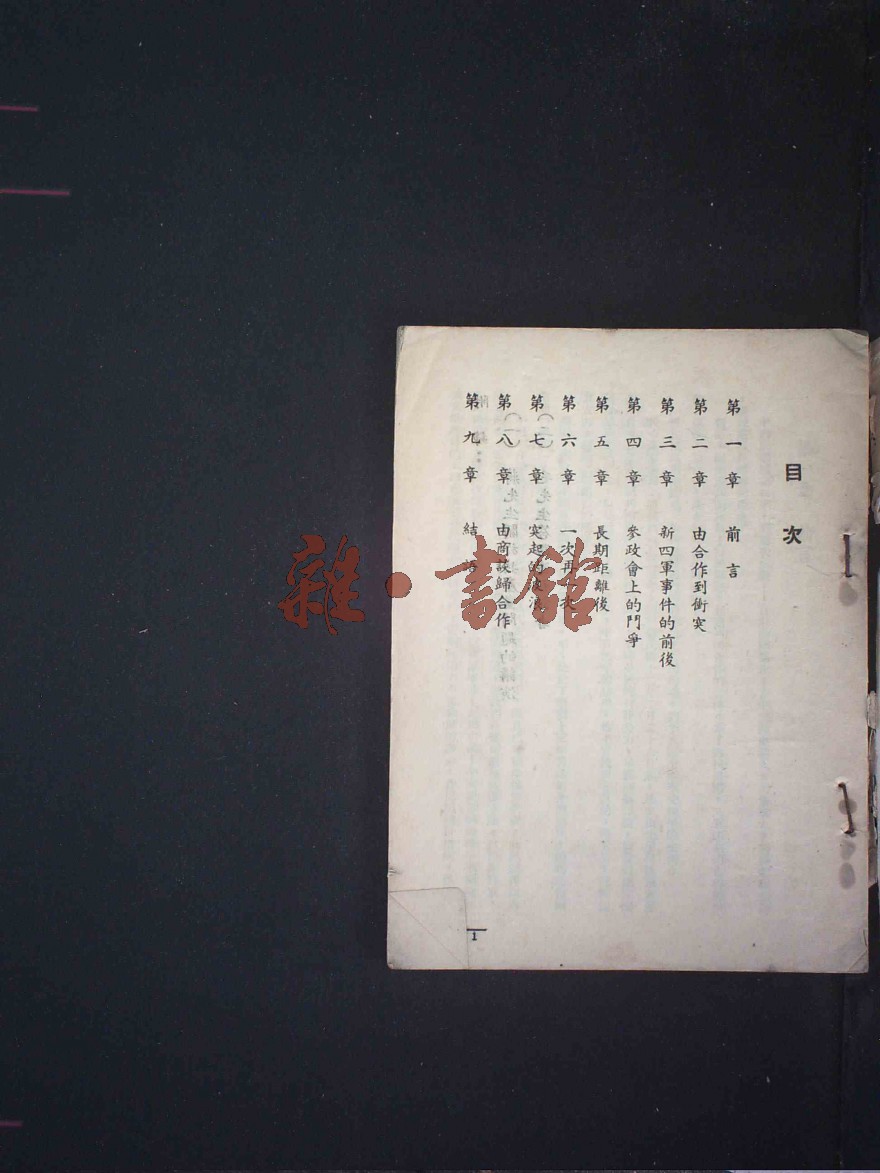 目次
第一章 前言
第二章 由合作到衝突
第三章 新四軍事件的前後
第四章 參政會上的鬥爭
第五章 長期距離後
第六章 一次再一次
第七章 突起的波浪
第八章 由商談歸合作
第九章 結語
1
雜·書館